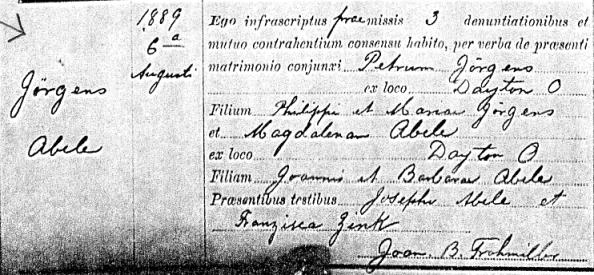 1889
6a
Augusti
Jörgens
Abele
Ego infrascriptus praemissis 3 denuntiationibus et
mutuo contrahentium consensu habito, per verba de præsenti
matrimonio conjunxi Petrum Jörgens
ex loco Dayton O
Filium Philippi et Mariae Jörgens
et Magdalenam Abele
ex loco Dayton O
Filiam Joannis et Barbarae Abele
Præsentibus testibus Josepho Abele et
Franzisca Zink
Joan. B.